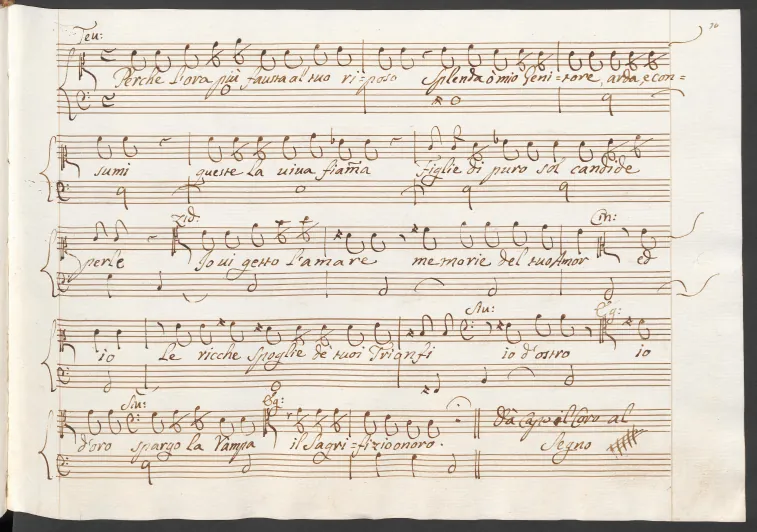 Teu: 76
Perche l'ora più fausta al tuo ri=poso Splenda ò mio Geni=tore, arda, e con=
sumi queste la viua fiam̃a Figlie di puro sol candide
Zid: Cin:
perle Io ui getto l'amare memorie del tuo Amor ed
Siu: Eg:
io Le ricche Spoglie de tuoi Trionfi io d'ostro io
Siu: Eg:
d'oro spargo la Vampa il Sagri=fizio onoro.
Da Capo il Coro al
Segno